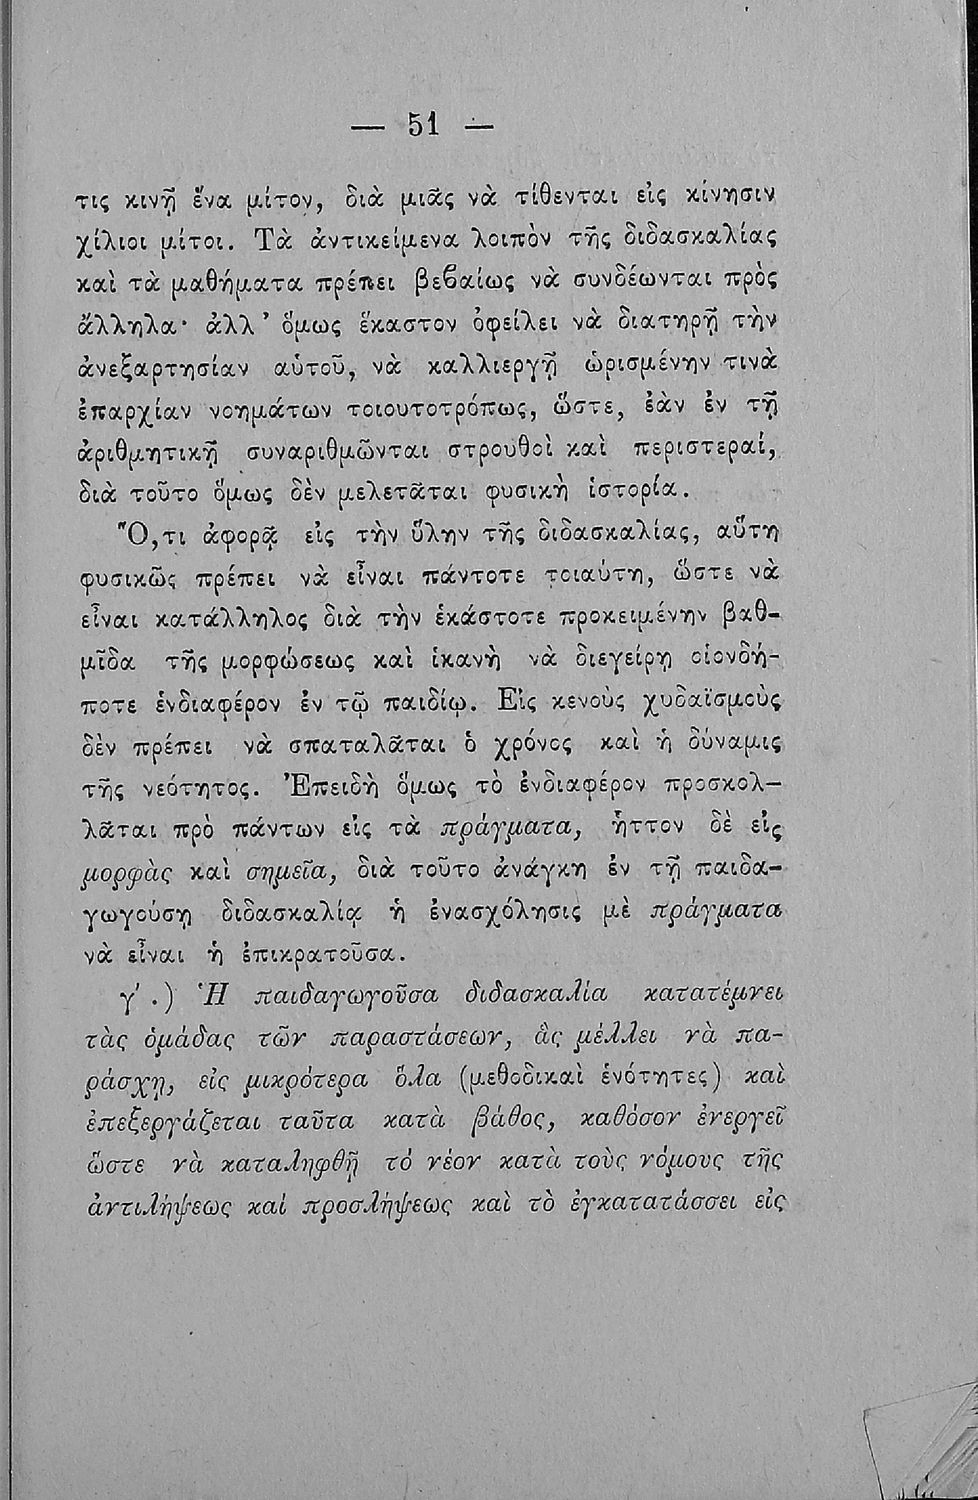 — 51 —
τις κινῇ ἕνα μίτον, διὰ μιᾶς νὰ τίθενται εἰς κίνησιν
χίλιοι μίτοι. Τὰ ἀντικείμενα λοιπὸν τῆς διδασκαλίας
καὶ τὰ μαθήματα πρέπει βεϐαίως νὰ συνδέωνται πρὸς
ἄλληλα· ἀλλ’ ὅμως ἕκαστον ὀφείλει νὰ διατηρῇ τὴν
ἀνεξαρτησίαν αὑτοῦ, νὰ καλλιεργῇ ὡρισμένην τινὰ
ἐπαρχίαν νοημάτων τοιουτοτρόπως, ὥστε, ἐὰν ἐν τῇ
ἀριθμητικῇ συναριθμῶνται στρουθοὶ καὶ περιστεραί,
διὰ τοῦτο ὅμως δὲν μελετᾶται φυσικὴ ἱστορία.
Ὅ,τι ἀφορᾷ εἰς τὴν ὕλην τῆς διδασκαλίας, αὕτη
φυσικῶς πρέπει νὰ εἶναι πάντοτε τοιαύτη, ὥστε νὰ
εἶναι κατάλληλος διὰ τὴν ἑκάστοτε προκειμένην βαθ-
μῖδα τῆς μορφώσεως καὶ ἱκανὴ νὰ διεγείρῃ οἱονδή-
ποτε ἐνδιαφέρον ἐν τῷ παιδίῳ. Εἰς κενοὺς χυδαϊσμοὺς
δὲν πρέπει νὰ σπαταλᾶται ὁ χρόνος καὶ ἡ δύναμις
τῆς νεότητος. Ἐπειδὴ ὅμως τὸ ἐνδιαφέρον προσκολ-
λᾶται πρὸ πάντων εἰς τὰ πράγματα, ἧττον δὲ εἰς
μορφὰς καὶ σημεῖα, διὰ τοῦτο ἀνάγκη ἐν τῇ παιδα-
γωγούσῃ διδασκαλίᾳ ἡ ἐνασχόλησις μὲ πράγματα
νὰ εἶναι ἡ ἐπικρατοῦσα.
γ′.) Ἡ παιδαγωγοῦσα διδασκαλία κατατέμνει
τὰς ὁμάδας τῶν παραστάσεων, ἃς μέλλει νὰ πα-
ράσχῃ, εἰς μικρότερα ὅλα (μεθοδικαὶ ἑνότητες) καὶ
ἐπεξεργάζεται ταῦτα κατὰ βάθος, καθόσον ἐνεργεῖ
ὥστε νὰ καταληφθῇ τὸ νέον κατὰ τοὺς νόμους τῆς
ἀντιλήψεως καί προσλήψεως καὶ τὸ ἐγκατατάσσει εἰς